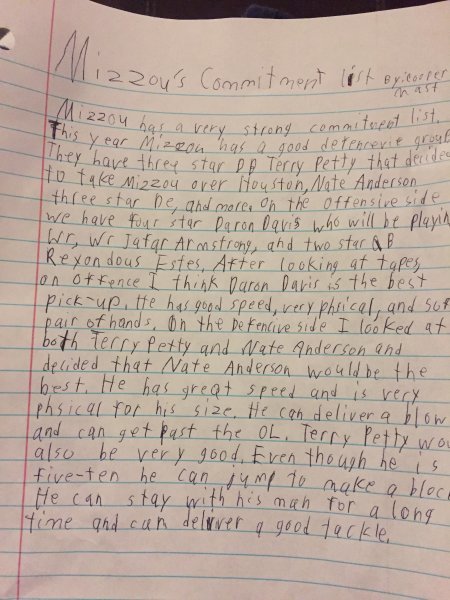 Mizzou's Commitment list By: Cooper
Mast
Mizzou has a very strong commitment list.
This year Mizzou has a good defencevie group
They have three star DB Terry Petty that decided
to take Mizzou over Houston, Nate Anderson
three star De, and more. On the offensive side
we have four star Daron Davis who will be playin
Wr, Wr Jafar Armstrong, and two star QB
Rexondous Estes. After looking at tapes,
on offence I think Daron Davis is the best
pick-up. He has good speed, very phsical, and sof
pair of hands. On the Defencive side I looked at
both Terry Petty and Nate Anderson and
decided that Nate Anderson would be the
best. He has great speed and is very
phsical for his size. He can deliver a blow
and can get past the OL. Terry Petty wou
also be very good. Even though he is
five-ten he can jump to make a block
He can stay with his man for a long
time and can deliver a good tackle.